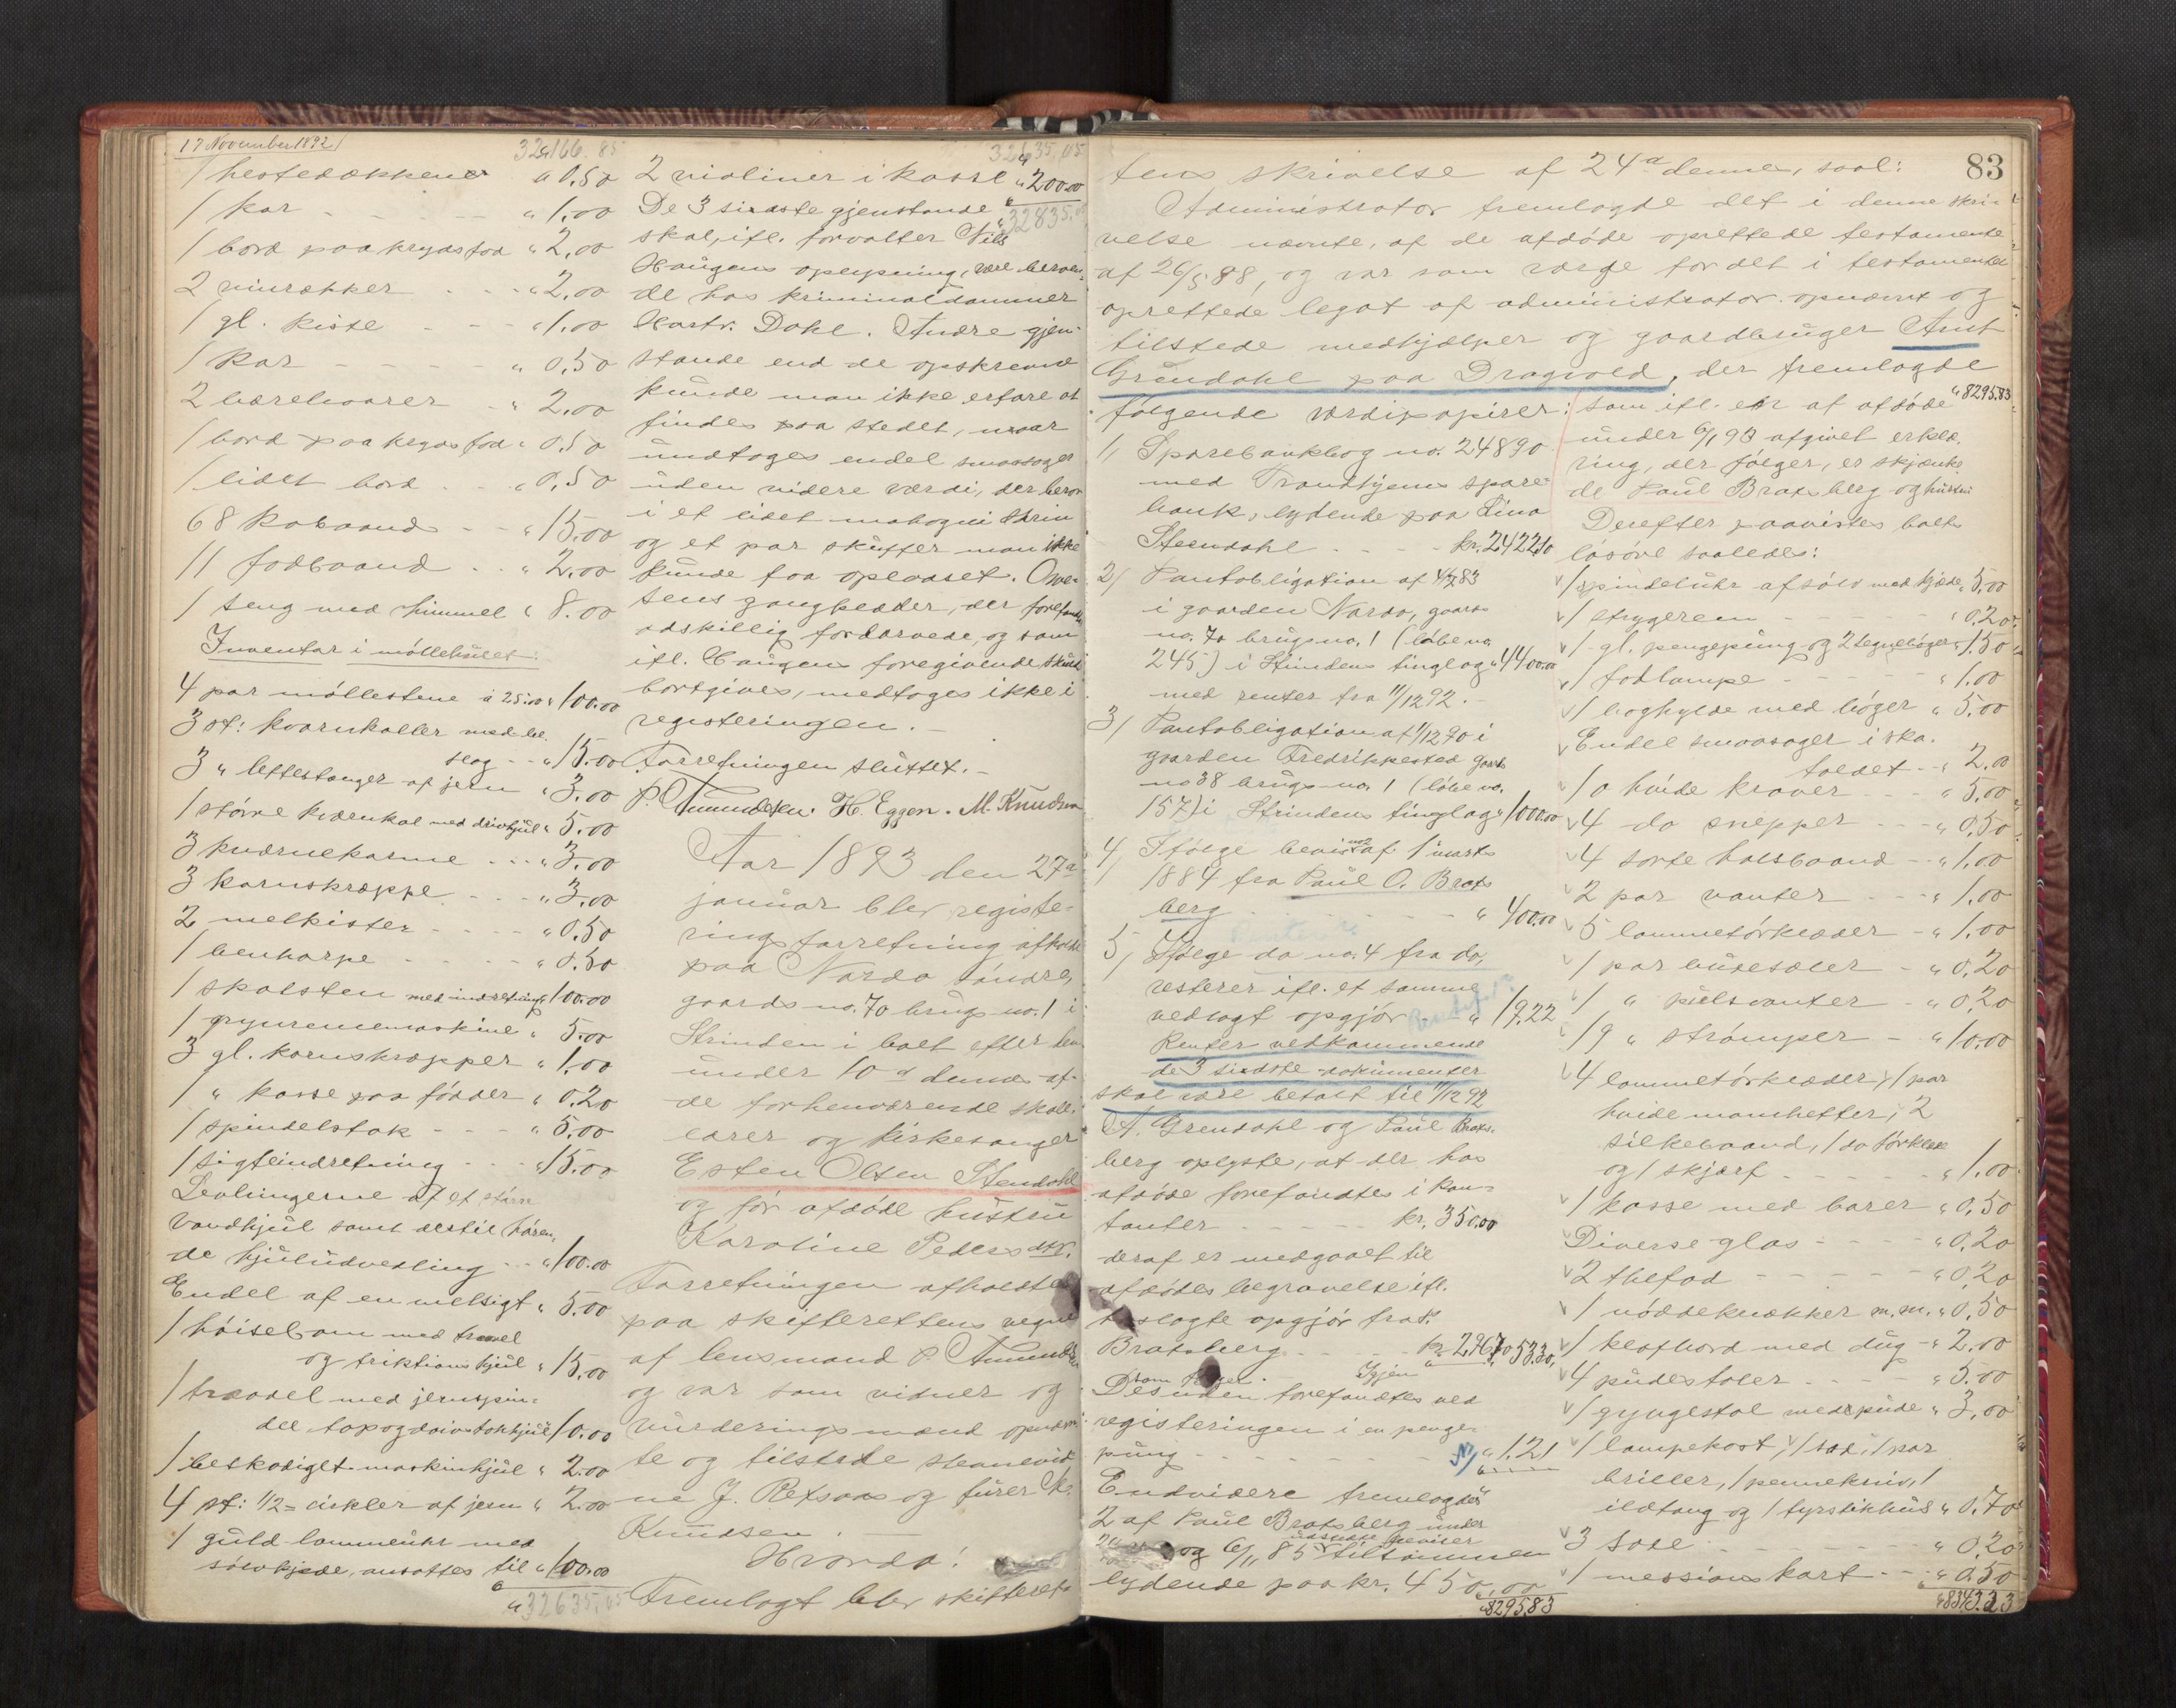 17 November 1892
32166.85
1 hestedækkener " 0.50
1 kar " 1.00
1 bord paa krydsfod " 2.00
2 vinrækker " 2.00
1 gl. kiste " 1.00
1 kar " 0.50
2 bærebaarer " 2.00
1 bord paa krydsfod " 0.50
1 lidet bord " 0.50
68 kobaand " 15.00
11 fodbaand " 2.00
1 seng med himmel " 8.00
Inventar i møllehuset:
4 par møllestene à 25.00 " 100.00
3 st: kværnkaller med be-
slag " 15.00
3 " lettestanger af jern " 3.00
1 større kværnkal med drivhjul " 5.00
3 kværnekarme " 3.00
3 kornskræppe " 3.00
2 melkister " 0.50
1 benharpe " 0.50
1 skalsten med indretning " 100.00
1 grynrensemaskine " 5.00
3 gl. kornskræpper " 1.00
1 " kasse paa fødder " 0.20
1 spindelstok " 5.00
1 sigteindretning " 15.00
Levningerne af et større
vandhjul samt dertil høren-
de hjuludvexling " 100.00
Endel af en melsigt " 5.00
1 høisebom med
og friktionshjul " 15.00
1 træaxel med jernspin-
del tap og drivstokhjul 10.00
1 beskadiget maskinhjul " 2.00
4 st: 1/2 cirkler af jern " 2.00
1 guld lommeuhr med
sølvkjede, ansattes til " 100.00
" 32635.05
32635.05
2 violiner i kasse " 200.00
De 3 sidste gjenstande " 32835.05
skal, ifl. forvalter Nils
Haugens oplysning, være beroen-
de hos kriminaldommer
Hartv. Dahl. Andre gjen-
stande end de opskrevne
kunde man ikke erfare at
findes paa stedet, naar
undtoges endel smaasager
uden videre værdi, der beror
i et lidet mahogni skrin
og et par skuffer man ikke
kunde faa oplaaset. Ove-
tens gangklæder, der forefandtes
adskillig fordærvede, og som
ifl. Haugens foregivende skulde
bortgives, medtoges ikke i
registeringen. —
Forretningen sluttet. —
P. Amundsen. H. Eggen. M. Knudsen
Aar 1893 den 27de
januar blev registe-
rings forretning afholdt
paa Nardo søndre,
gaards no. 70 brugs no. 1 i
Strinden i boet efter den
under 10de dennes af-
de forhenværende skole-
lærer og kirkesanger
Esten Olsen Stendahl
og før afdøde hustru
Karoline Pedersdtr.
Forretningen afholdtes
paa skifterettens vegne
af lensmand P. Amundsen
og var som vidner og
vurderingsmænd opnævn-
te og tilstede stenevid-
ne J. Retsaas og furer M.
Knudsen.
Hvorda!
Fremlagt blev skifteret-
83
tens skrivelse af 24de dennes, saal:
Administrator fremlagde det i denne skri-
velse nævnte, af de afdøde oprettede testamente
af 26/5 88, og var som værge for det i testamentet
oprettede legat af administrator opnævnt og
tilstede medhjælper og gaardbruger Arnt
Grendahl paa Dragvold, der fremlagde
følgende værdipapirer:
1, Sparebankbog no. 24890
med Trondhjems spare-
bank, lydende paa Lina
Steendahl kr. 2422.10
2, Pantobligation af 4/7 83
i gaarden Nardo, gaards
no. 70 brugs no. 1 (løbe no.
245) i Strindens tinglag " 4400.00
med renter fra 11/12 92. —
3, Pantobligation af 11/12 90 i
gaarden Fredrikkested gaards
no 38 brugs no. 1 (løbe no.
157) i Strindens tinglag " 1000.00
4, Ifølge bevis af 1 marts
1884 fra Paul O. Brats-
berg " 400.00
5, Ifølge do no. 4 fra do,
resterer ifl. et samme
vedlagt opgjør " 19.22
Renter vedkommende
de 3 sidste dokumenter
skal være betalt til 11/12 92
A. Grendahl og Paul Brats-
berg oplyste, at der hos
afdøde forefandtes i kon-
tanter kr. 350.00
deraf er medgaaet til
afdødes begravelse ifl.
opgjør fra P.
Bratsberg kr. 296.70 53.30
Igjen
Desuden forefandtes ved
registeringen i en penge-
pung " 1.21
Endvidere fremlagdes
2 af Paul Bratsberg under
udstedte beviser
og 6/11 85 tilsammen
lydende paa kr. 450.00
" 8295.83
" 8295.83
som ifl. en af afdøde
under 6/1 93 afgivet erklæ-
ring, der følger, er skjænke-
de Paul Bratsberg og hustru
Derefter paavistes boets
løsøre saaledes:
1 spindeluhr af sølv med kjæde " 5.00
1 strygerem " 0.20
1 gl. pengepung og 2 tegnebøger " 1.50
1 fodlampe " 1.00
1 boghylde med bøger " 5.00
Endel smaasager i ska-
toldet " 2.00
10 hvide kraver " 5.00
4 do snepper " 0.50
4 sorte halsbaand " 1.00
2 par vanter " 1.00
5 lommetørklæder " 1.00
1 par buxesæler " 0.20
1 " pulsvanter " 0.20
19 " strømper " 10.00
4 lommetørklæder, 1 par
hvide manchetter, 2
silkebaand, 1 do tørklæde
og 1 skjærf " 1.00
1 kasse med barer " 0.50
Diverse glas " 0.20
2 thefad " 0.20
1 nøddeknækker m.m. " 0.50
1 klafbord med dug " 2.00
4 pudestoler " 5.00
1 gyngestol med pude " 3.00
1 lampekost, 1 sax, 1 par
briller, 1 pennekniv, 1
ildtang og 1 fyrstikhus " 0.70
3 saxe " 0.20
1 missionskart " 0.50
" 8343.23